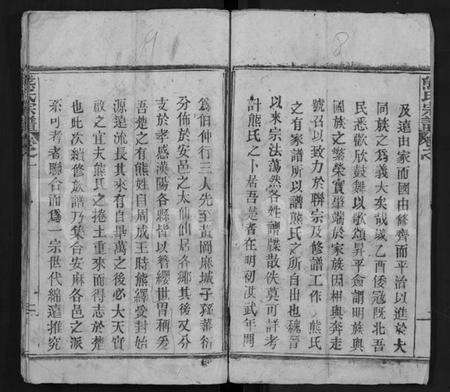 8
熊氏宗譜
及遠由家而國由修齊而平治以進於大
同族之為義大矣哉歲乙酉倭寇既北吾
民悉歡欣鼓舞以歌頌昇平僉謂明族與
國族之繁榮實肇端於家族因相與奔走
號召以致力於聯宗及修譜工作 熊氏
之有家譜所以譜熊氏之所自出也魏晉
以來宗法蕩然各姓譜牒散佚莫可詳考
計熊氏之卜居吾邑者在明初洪武年間
19
為伯仲行三人先至黃岡麻城子孫蕃衍
分佈於安邑之太仙仙居各鄉其後又分
支於孝感漢陽各縣者以簪纓世冑稱焉
吾楚之有熊姓自周成王時熊繹受封始
源遠流長其來有自畢萬之後必大天實
啟之宜夫熊氏之捲土重來而得志於楚
也此次續修族譜乃集合安麻各邑之派
系可考者聯合而為一宗世代綿遠推究
熊氏宗譜